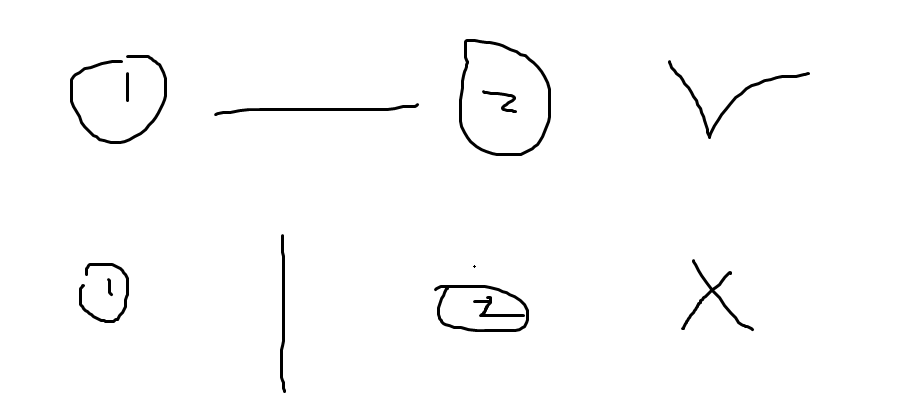 1 — 2 ✓
1 | 2 ✗